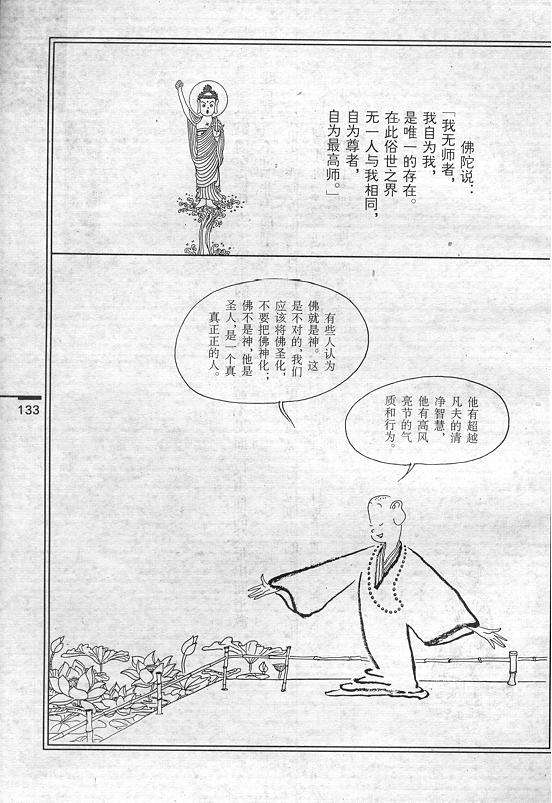 佛陀说：
「我无师者，
我自为我，
是唯一的存在。
在此俗世之界
无一人与我相同，
自为尊者，
自为最高师。」
有些人认为
佛就是神。这
是不对的，我们
应该将佛圣化，
不要把佛神化；
佛不是神，他是
圣人，是一个真
真正正的人。
他有超越
凡夫的清
净智慧，
他有高风
亮节的气
质和行为。
133